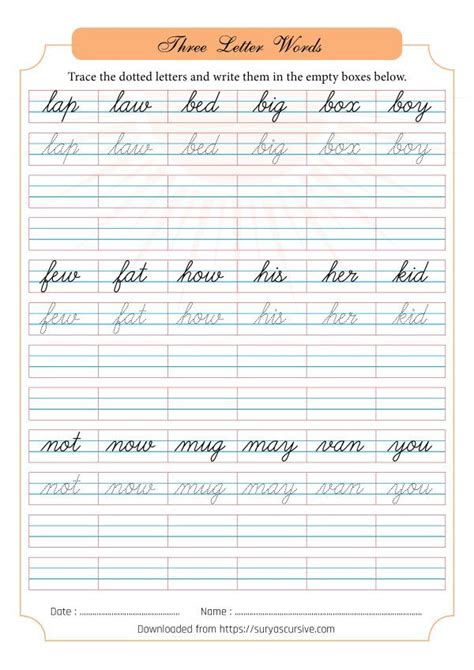 Three Letter Words
Trace the dotted letters and write them in the empty boxes below.
lap law bed big box boy
lap law bed big box boy
few fat how his her kid
few fat how his her kid
not now mug may van you
not now mug may van you
Date : ........................................ Name : ........................................................
Downloaded from https://suryascursive.com